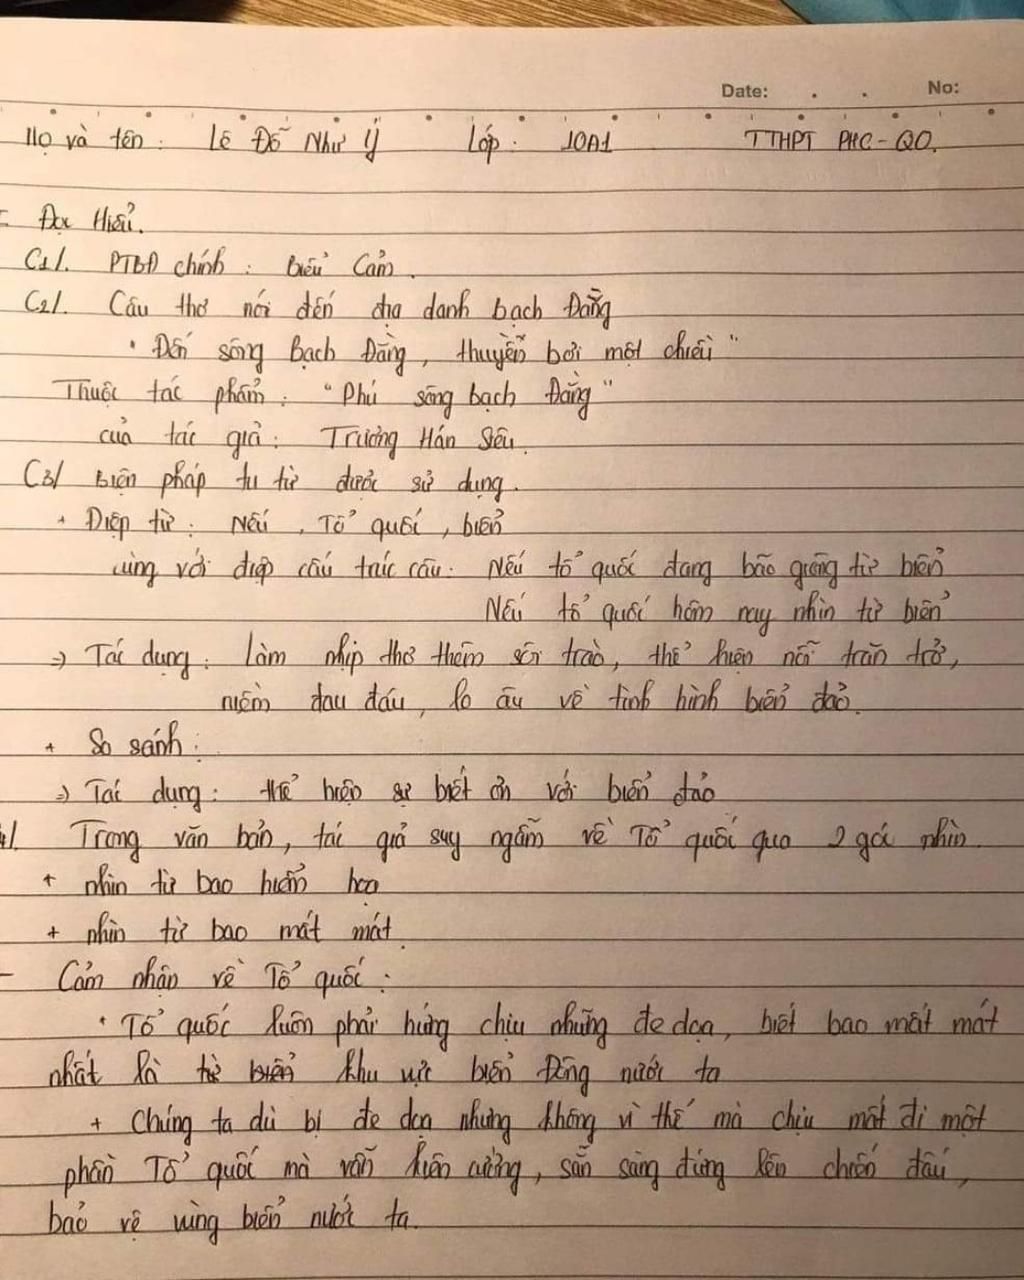 Date: . . No:
Họ và tên: Lê Đỗ Như Ý Lớp: 10A1 TTHPT PHC-QO.
Đọc Hiểu.
C1/. PTBĐ chính: Biểu Cảm.
C2/. Câu thơ nói đến địa danh bạch Đằng
" Đến sông Bạch Đằng, thuyền bơi một chiều "
Thuộc tác phẩm: " Phú sông bạch Đằng "
của tác giả: Trương Hán Siêu.
C3/ Biện pháp tu từ được sử dụng.
+ Điệp từ: Nếu, Tổ quốc, biển
cùng với điệp cấu trúc câu: Nếu tổ quốc đang bão giông từ biển
Nếu tổ quốc hôm nay nhìn từ biển
=> Tác dụng: Làm nhịp thơ thêm sôi trào, thể hiện nỗi trăn trở,
niềm đau đáu, lo âu về tình hình biển đảo.
+ So sánh:
=> Tác dụng: thể hiện sự biết ơn với biển đảo
4/. Trong văn bản, tác giả suy ngẫm về Tổ quốc qua 2 góc nhìn.
+ nhìn từ bao hiểm họa
+ nhìn từ bao mất mát.
- Cảm nhận về Tổ quốc:
+ Tổ quốc luôn phải hứng chịu những đe dọa, biết bao mất mát
nhất là từ biển khu vực biển Đông nước ta
+ Chúng ta dù bị đe dọa nhưng không vì thế mà chịu mất đi một
phần Tổ quốc mà vẫn kiên cường, sẵn sàng đứng lên chiến đấu,
bảo vệ vùng biển nước ta.